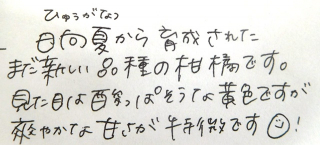 ひゅうがなつ
日向夏から育成された
まだ新しい品種の柑橘です。
見た目は酸っぱそうな黄色ですが
爽やかな甘さが特徴です☺!